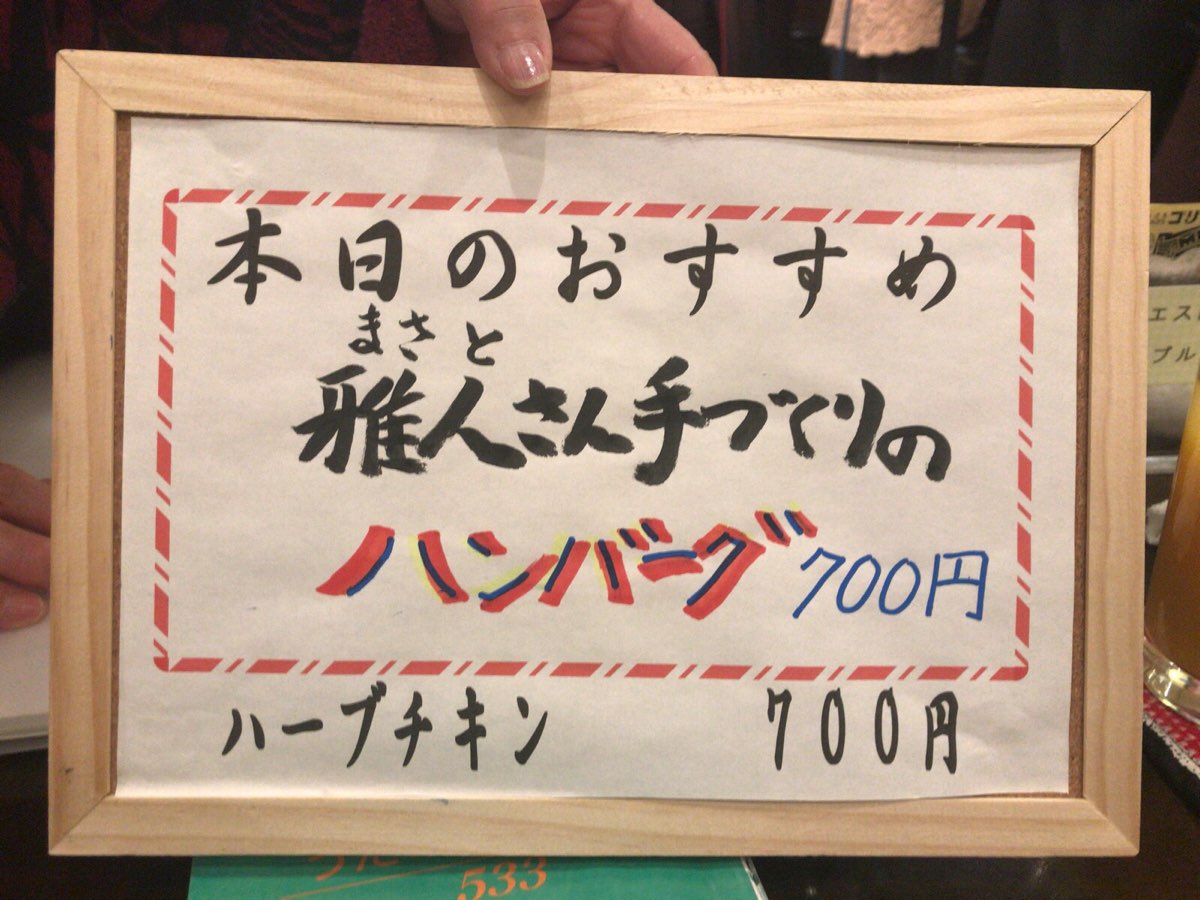 本日のおすすめ
まさと
雅人さん手づくりの
ハンバーグ 700円
ハーブチキン 700円
533